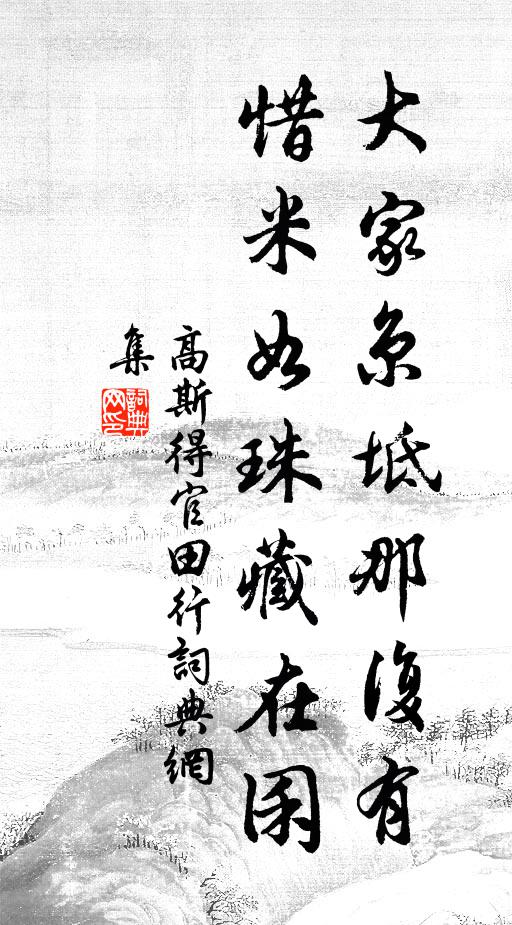 大家京坻那復有
惜米如珠藏在囷
高斯得官田行詞典網
集
詞典網印